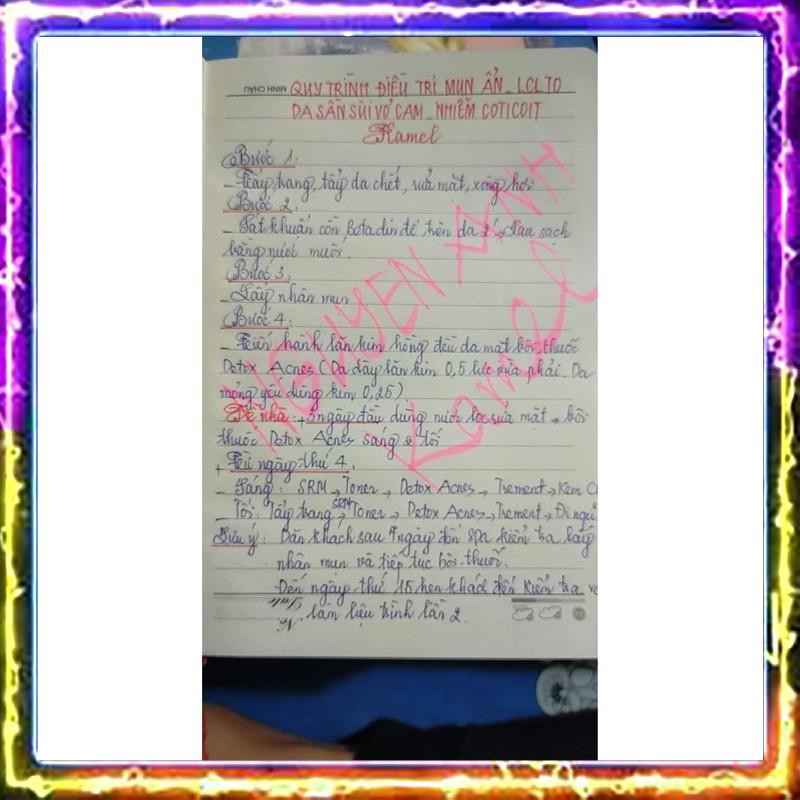 MINH CHÂU
QUY TRÌNH ĐIỀU TRỊ MỤN ẨN_LCL TO
DA SẦN SÙI VỎ CAM_NHIỄM COTICOIT
Kamel
Bước 1:
- Tẩy trang, tẩy da chết, sửa mặt, xông hơi
Bước 2:
- Sát khuẩn cồn Betadin để trên da 2', Lau sạch
bằng nước muối.
Bước 3:
- Lấy nhân mụn
Bước 4:
- Tiến hành lăn kim hồng đều da mặt bôi thuốc
Detox Acnes (Da dày lăn kim 0,5 lực vừa phải. Da
mỏng yếu dùng kim 0,25)
Về nhà: + 3 ngày đầu dùng nước lọc sửa mặt → bôi
thuốc Detox Acnes sáng & tối
+ Từ ngày thứ 4.
- Sáng: SRM → Toner → Detox Acnes → Trement → Kem C
- Tối: Tẩy trang → SRM → Toner → Detox Acnes → Trement → Đi ngủ
Lưu ý: Dặn khách sau 7 ngày đến spa kiểm tra lấy
nhân mụn và tiếp tục bôi thuốc.
Đến ngày thứ 15 hẹn khách đến kiểm tra và
làm liệu trình lần 2.
Date
No.
NGUYEN XANH
Kamel